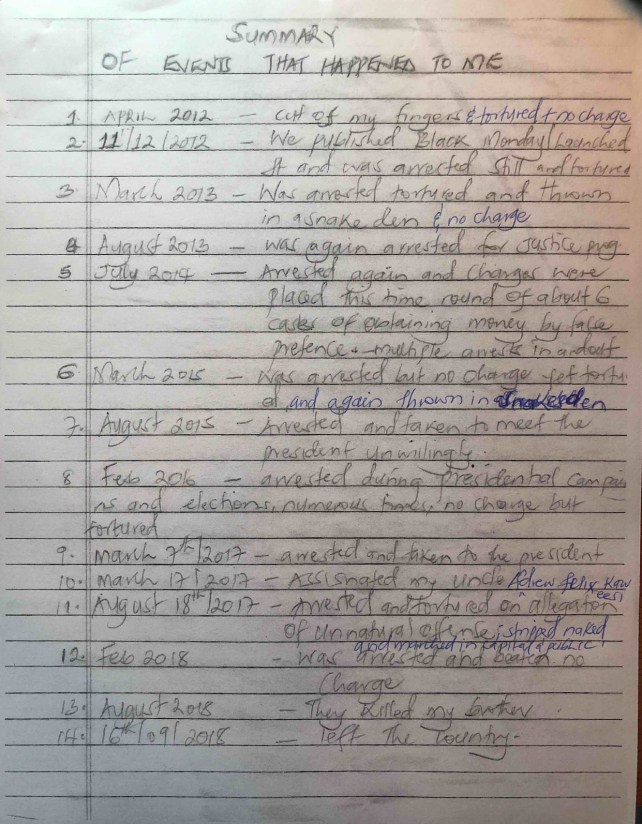 SUMMARY
OF EVENTS THAT HAPPENED TO ME
1. APRIL 2012 – cut of my fingers & tortured + no charge
2. 11/12/2012 – We published Black Monday/Launched
It and was arrested still and tortured
3. March 2013 – Was arrested tortured and thrown
in a snake den & no charge
4 August 2013 – was again arrested for Justice
5 July 2014 — Arrested again and Charges were
placed this time round of about 6
cases of obtaining money by false
pretence + multiple arrests in and out
6. March 2015 – Was arrested but no charge yet tortu
ed and again thrown in a snakes den
7. August 2015 – Arrested and taken to meet the
president unwilingly.
8 Feb 2016 – arrested during Presidential Campai
ns and elections, numerous times, no charge but
tortured
9. March 7th/2017 – arrested and taken to the president
10. March 17/2017 – Assisnated my uncle Adrew felix Kaw
eesi
11. August 18th/2017 – Arrested and tortured on allegation
of unnatural offense; stripped naked
and marched in capital & public
12. Feb 2018 – Was arrested and beaten no
Charge
13. August 2018 – They killed my brother
14. 16th/09/2018 – left The Country.